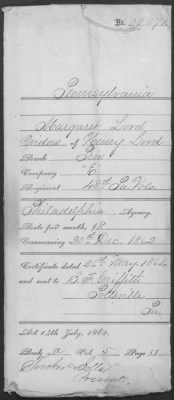 No.
Pennsylvania
Margaret Lord
Widow of Henry Lord
Rank Priv
Company "E"
Regiment 48th Pa Vols
Philadelphia Agency.
Rate per month, $8
Commencing 20th Dec. 1862
Certificate dated 26th May 1864
and sent to B. F. Griffith
Pottsville
Pa
Act 14th July, 1862.
Book Vol. 5 Page 58